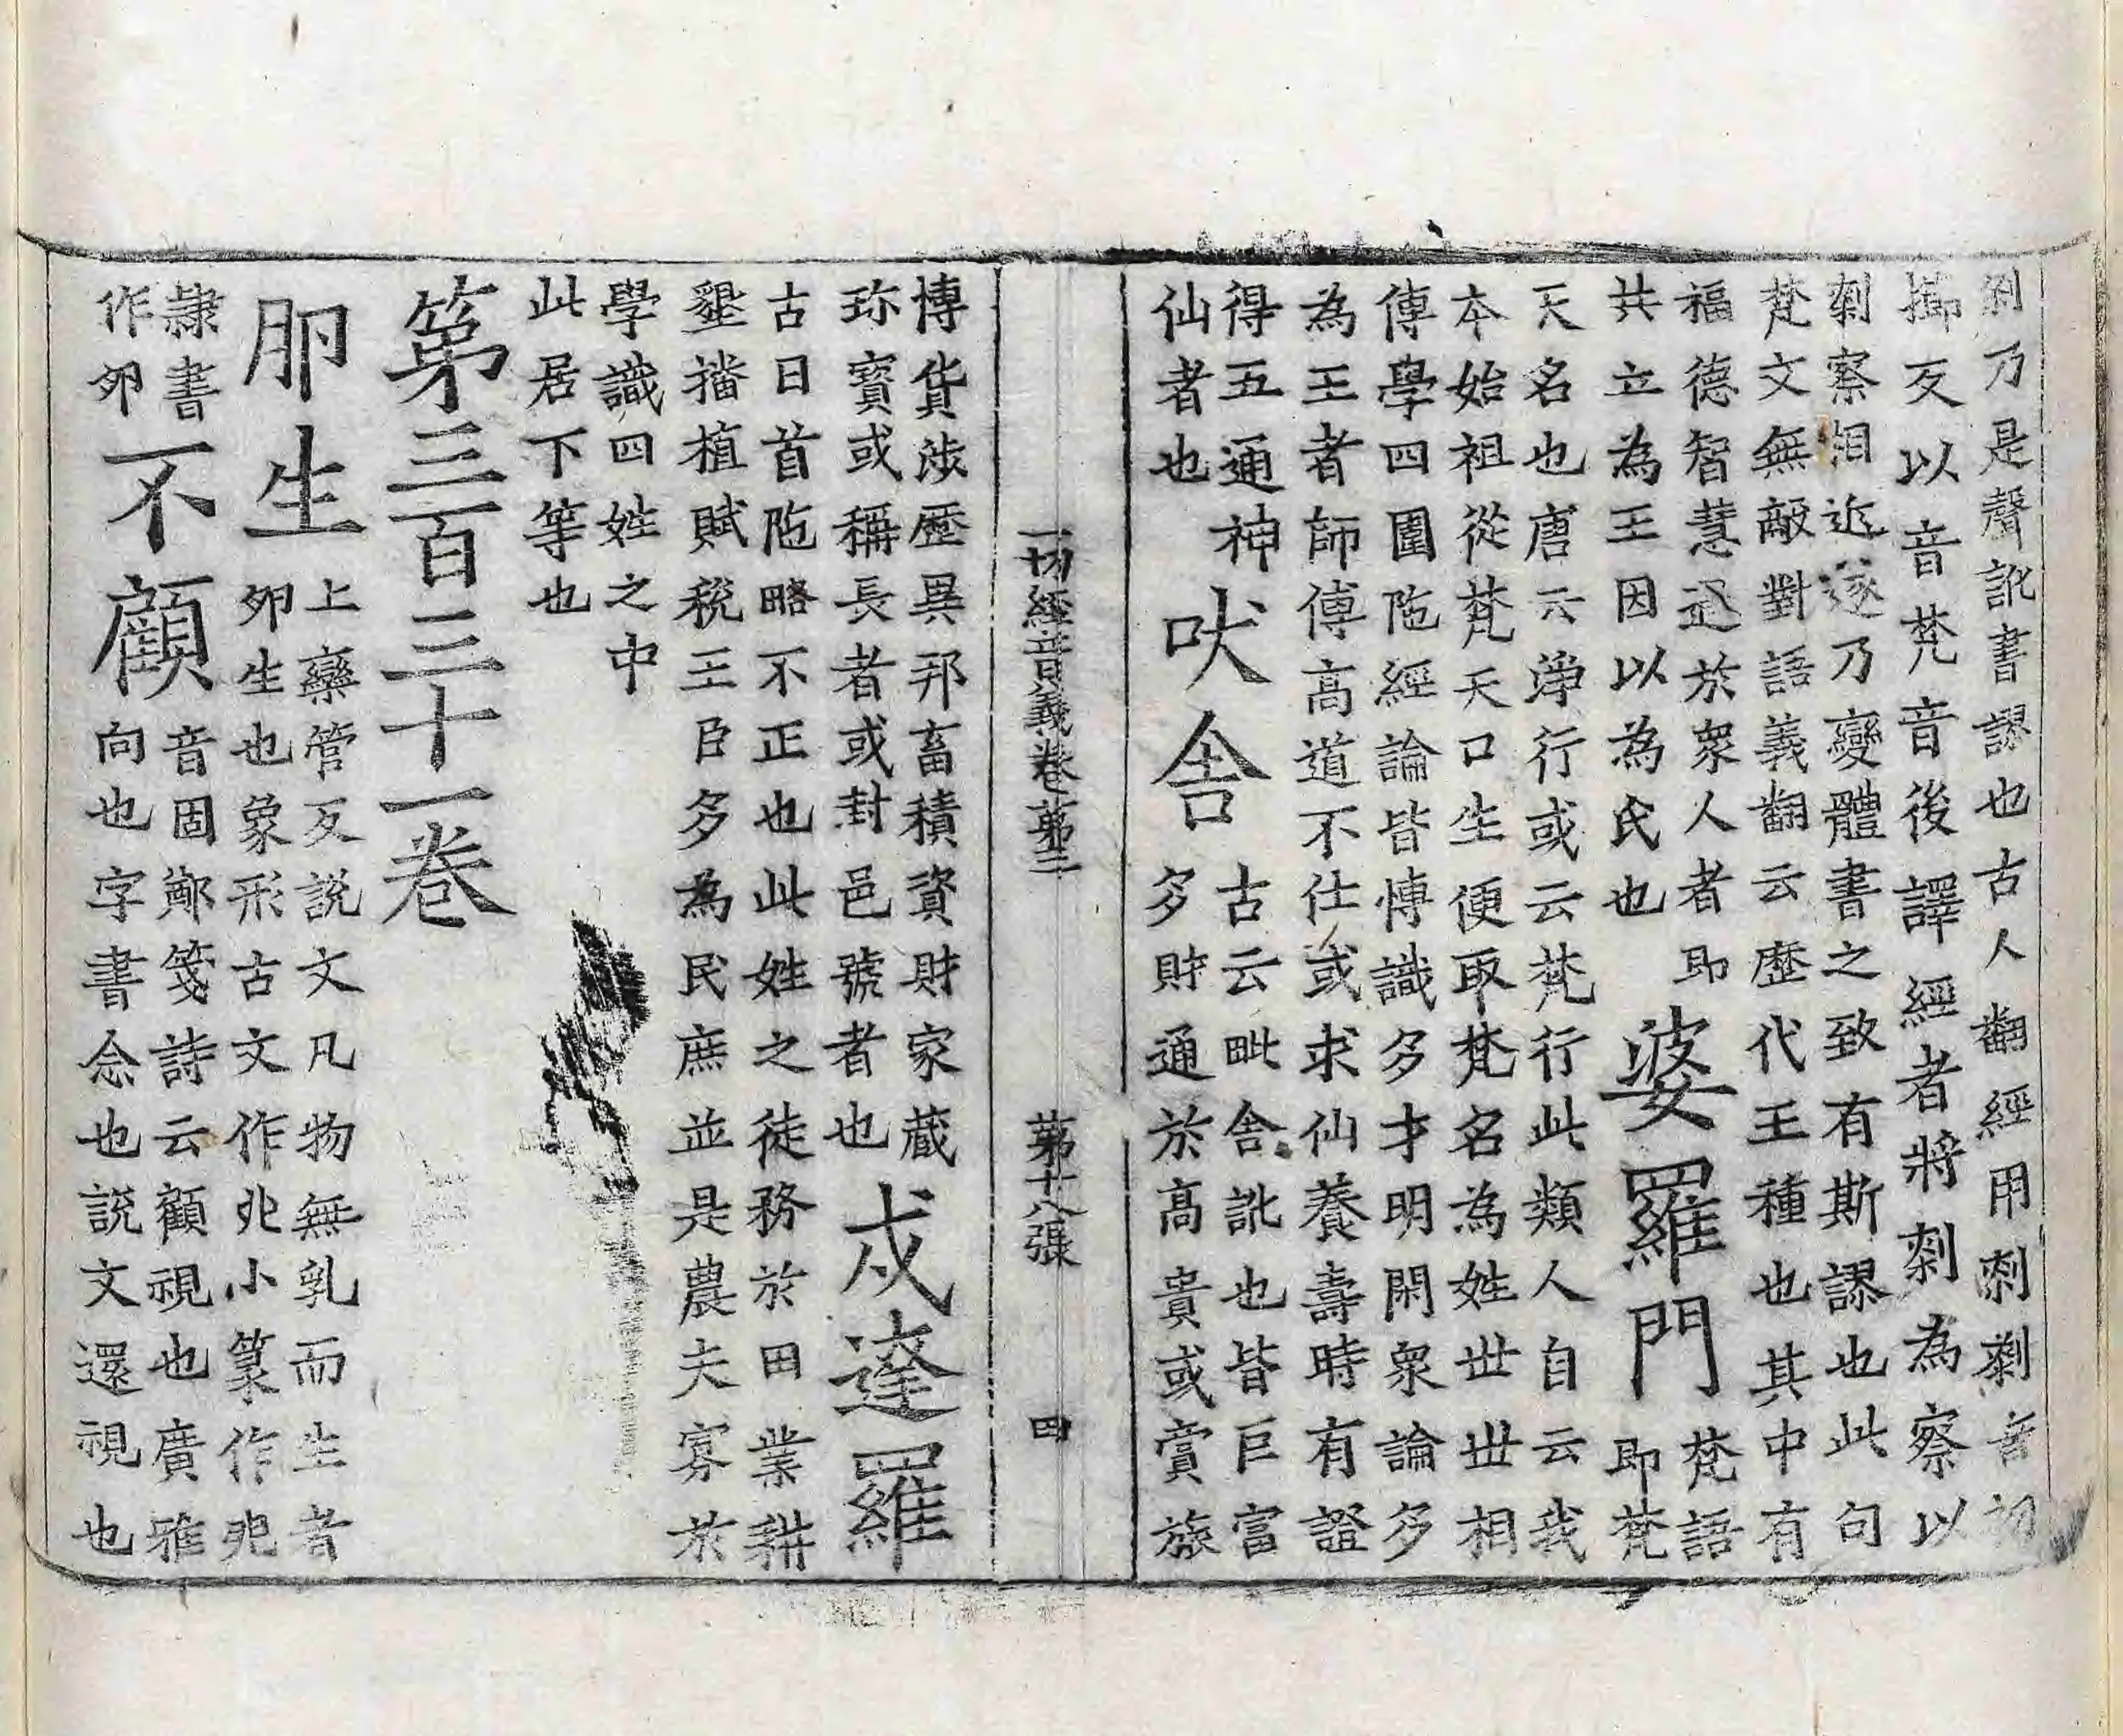 刹乃是聲訛書謬也古人翻經用刺剎音初
擳反以音梵音後譯經者將刹為察以
刹察相近遂乃變體書之致有斯謬也此句
梵文無敵對語義翻云歷代王種也其中有
福德智慧過於衆人者即
共立為王因以為民也
婆羅門
梵語
即梵
天名也唐云淨行或云梵行此類人自云我
本始祖從梵天口生便取梵名為姓世世相
傳學四圍陁經論皆博識多才明閑衆論多
為王者師傅高道不仕或求仙養壽時有證
得五通神
仙者也
吠舍
古云毗舍訛也皆巨富
多財通於高貴或賞旅
一切經音義卷第三 第十八張 四
博貨涉歷異邦畜積資財家藏
珎寶或稱長者或封邑號者也
戍達羅
古曰首陁略不正也此姓之徒務於田業耕
墾播植賦稅王臣多為民庶並是農夫寡於
學識四姓之中
此居下等也
第三百三十一卷
卵生
上欒管反說文凡物無乳而生者
卵生也象形古文作𠁾小篆作卵
隷書
作卵
不顧
音固鄭箋詩云顧視也廣雅
向也字書念也說文還視也